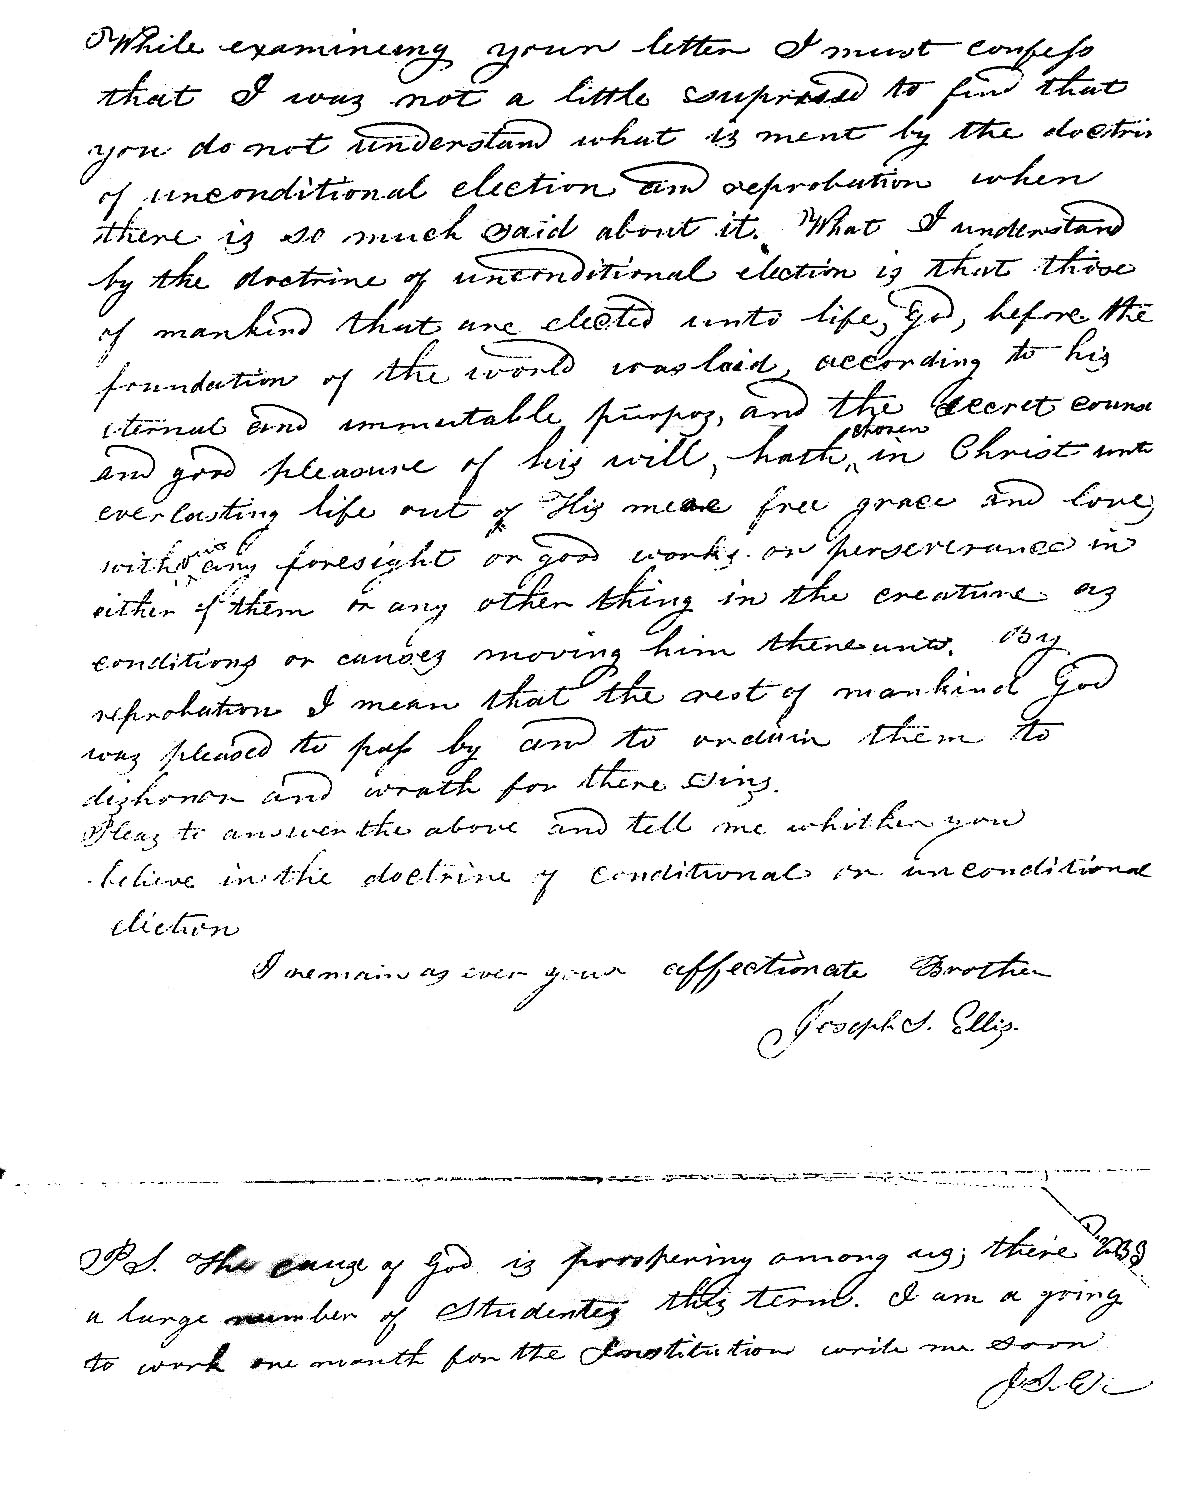 While examineing your letter I must confess
that I was not a little suprised to find that
you do not understand what is ment by the doctrin
of unconditional election and reprobation when
there is so much said about it. What I understand
by the doctrine of unconditional election is that those
of mankind that are elected unto life, God, before the
foundation of the world was laid, according to his
eternal and immutable purpos, and the secret couns
and good pleasure of his will, hath chosen in Christ unto
everlasting life out of His mere free grace and love,
without any foresight or good works or perserverance in
either of them or any other thing in the creature as
conditions or causes moving him thereunto. By
reprobation I mean that the rest of mankind God
was pleased to pass by and to ordain them to
dishonor and wrath for there sins.
Pleas to answer the above and tell me whither you
believe in the doctrine of conditional or unconditional
election
I remain as ever your affectionate Brother
Joseph S. Ellis.
P S. The cause of God is prospering among us; there
a large number of Studentes this term. I am a going
to work one month for the Institution write me soon
J. S. E.